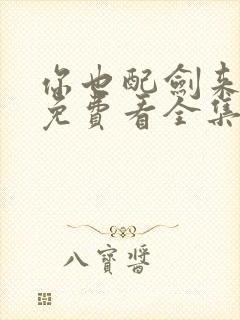 你也配劍来
免費看全集
八寶醬